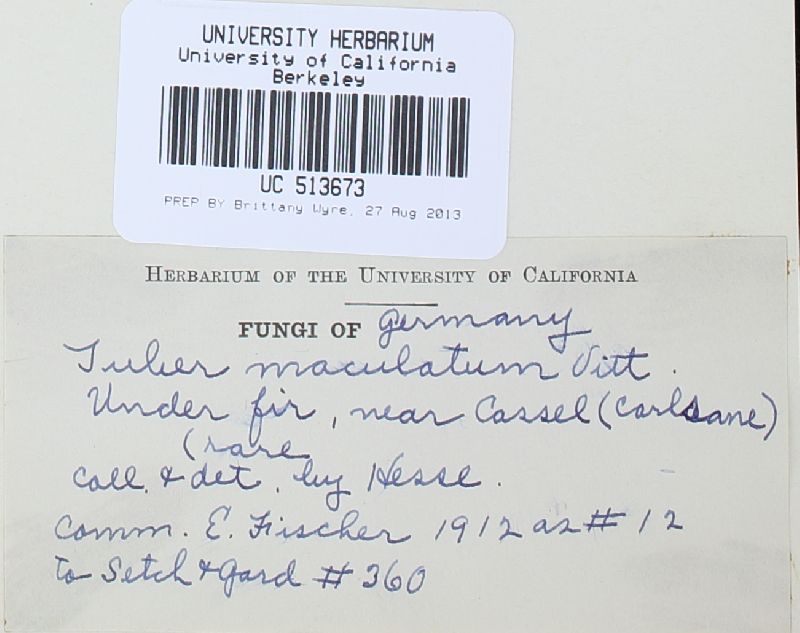 UNIVERSITY HERBARIUM
University of California
Berkeley
UC 513673
PREP BY Brittany Wyre, 27 Aug 2013
HERBARIUM OF THE UNIVERSITY OF CALIFORNIA
FUNGI OF Germany
Tuber maculatum Vitt.
Under fir, near Cassel (Carlsane)
(rare
Coll. & det. by Hesse.
Comm. E. Fischer 1912 as # 12
to Setch & Gard # 360